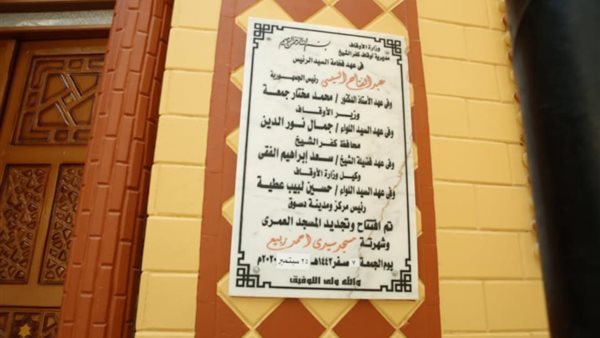 بسم الله الرحمن الرحيم
وزارة الأوقاف
مديرية أوقاف كفر الشيخ
فى عهد فخامة السيد الرئيس
عبدالفتاح السيسى رئيس الجمهورية
وفى عهد الأستاذ الدكتور / محمد مختار جمعة
وزير الأوقاف
وفى عهد السيد اللواء / جمال نور الدين
محافظ كفر الشيخ
وفى عهد فضيلة الشيخ / سعد إبراهيم الفقى
وكيل وزارة الأوقاف
وفى عهد السيد اللواء / حسين لبيب عطية
رئيس مركز ومدينة دسوق
تم افتتاح وتجديد المسجد العمرى
وشهرتة مسجد سيدى احمد ربيع
يوم الجمعة ٧ صفر ١٤٤٢هـ ٢٥ سبتمبر ٢٠٢٠م
والله ولى التوفيق